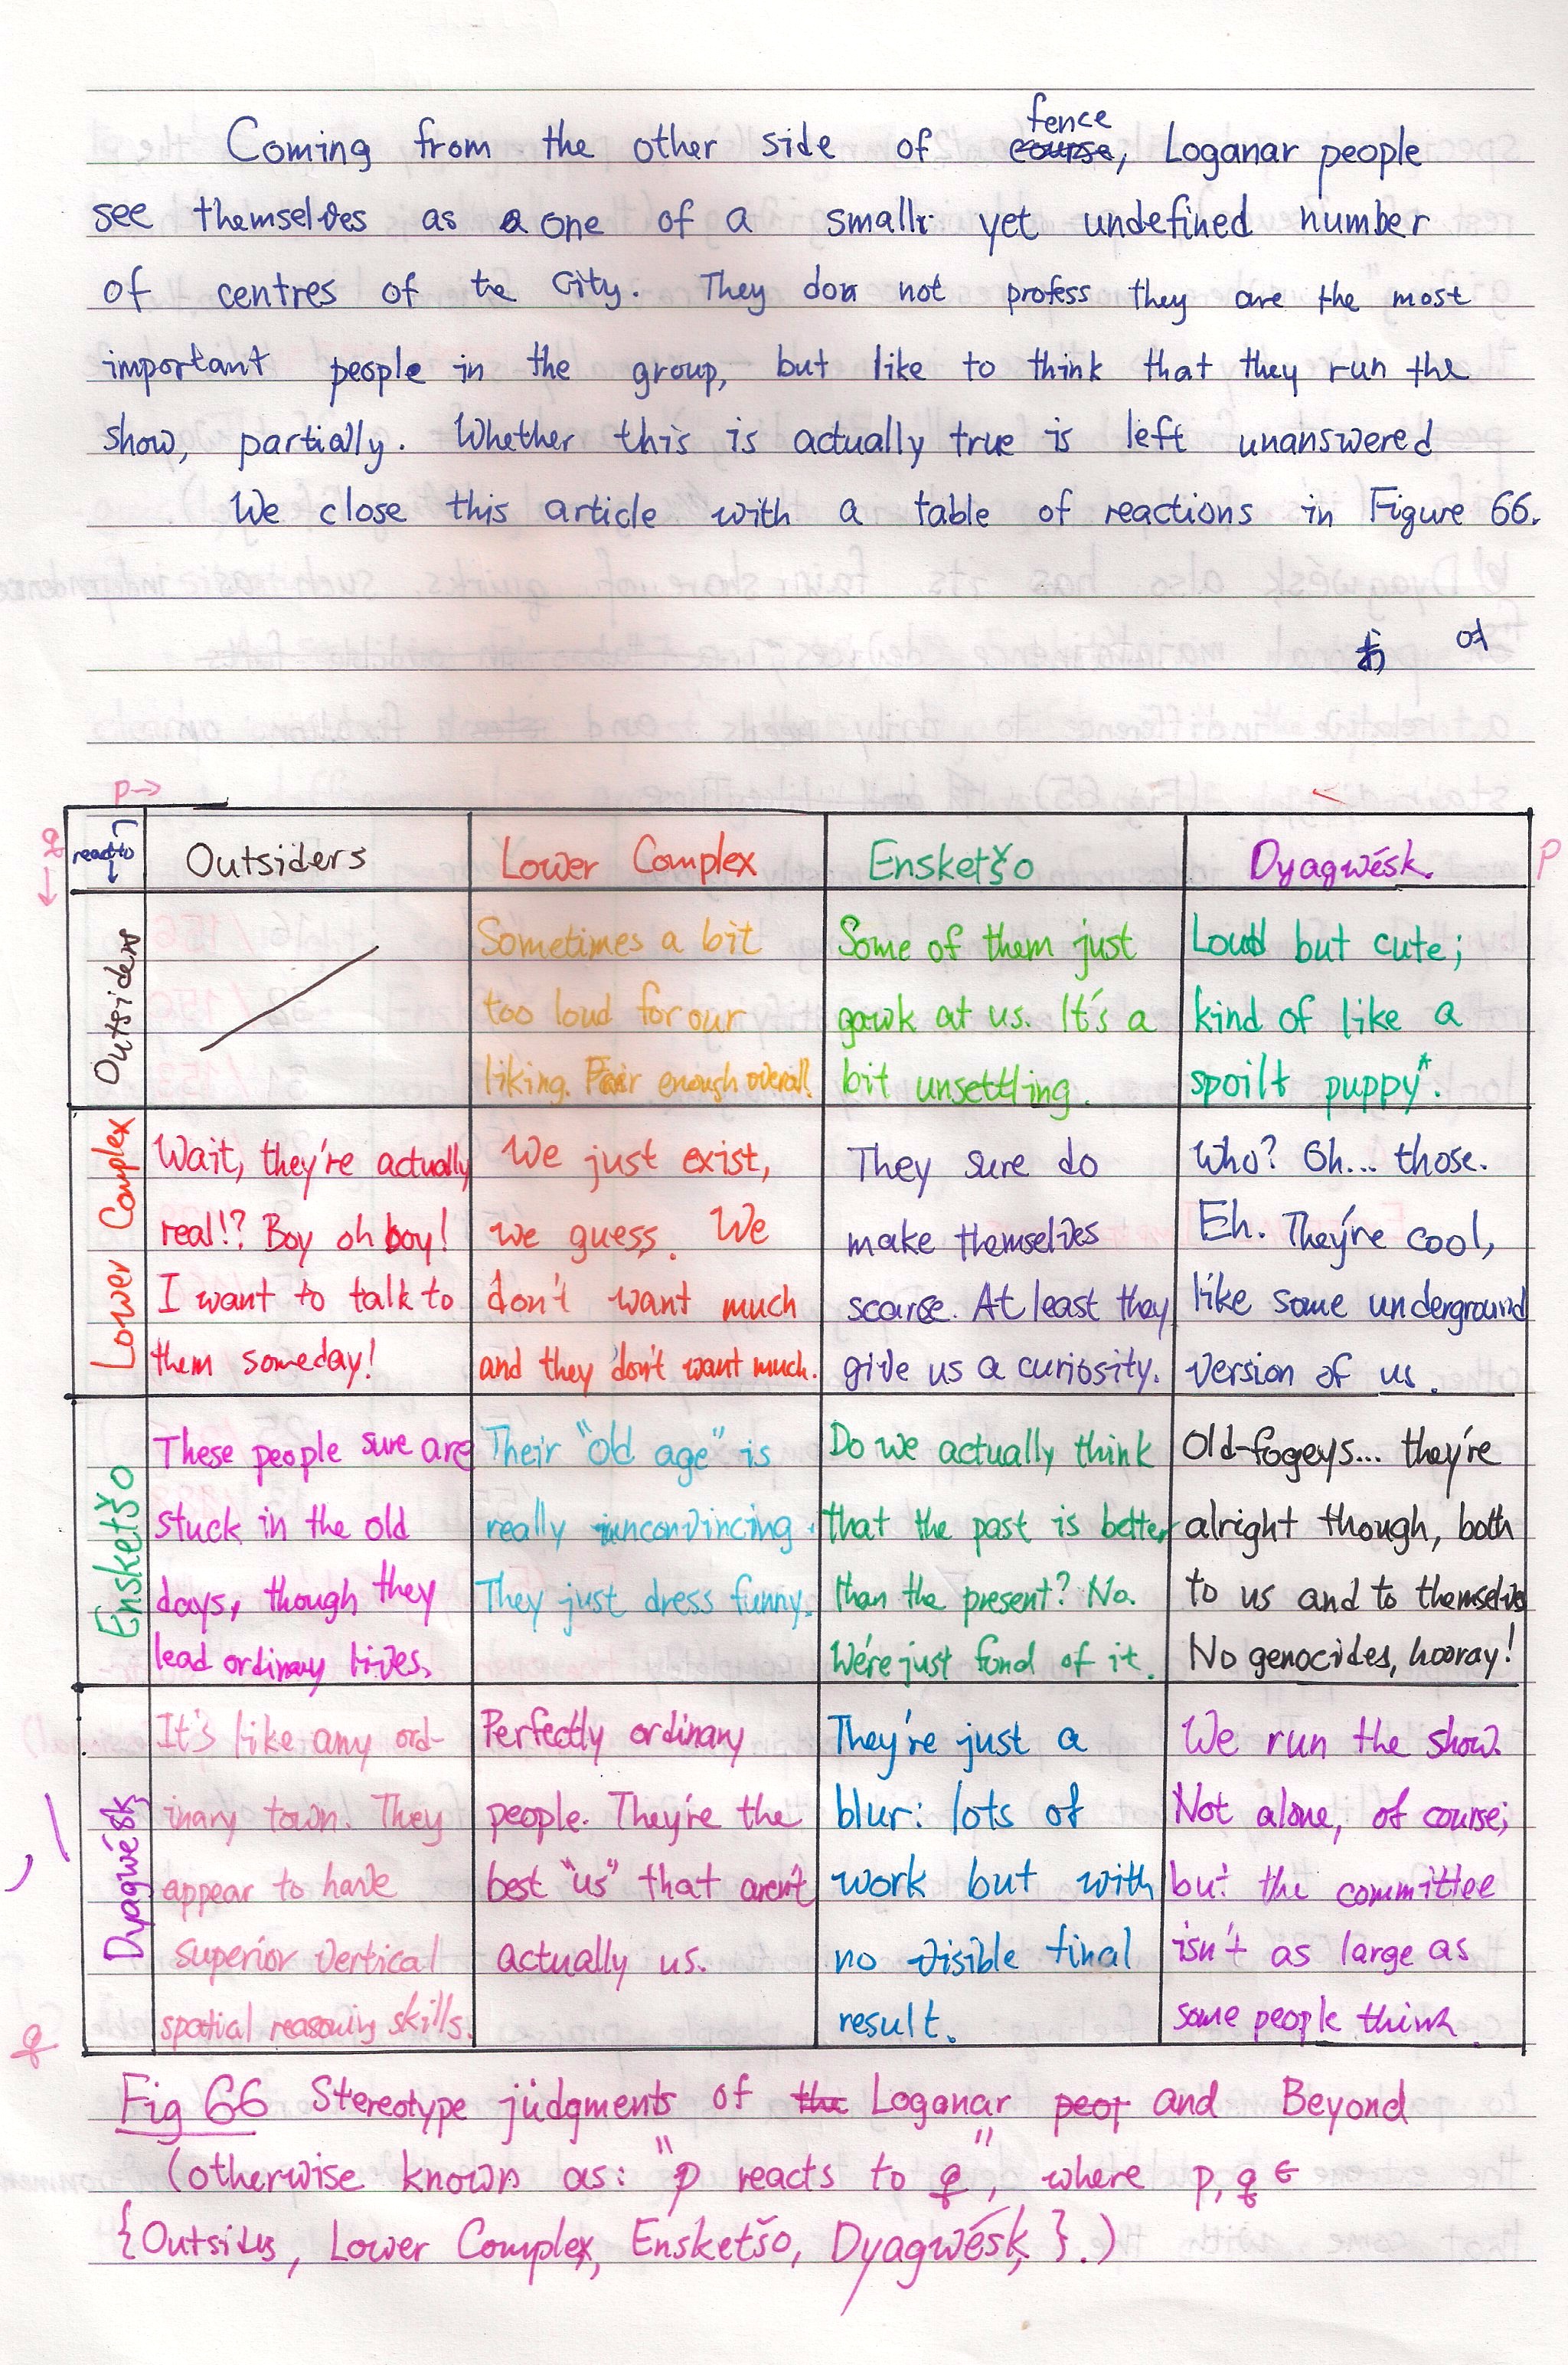 fence
Coming from the other side of course, Loganar people
see themselves as a one of a small yet undefined number
of centres of the City. They don not profess they are the most
important people in the group, but like to think that they run the
show, partially. Whether this is actually true is left unanswered
We close this article with a table of reactions in Figure 66.
p→
q↓
react to Outsiders Lower Complex Ensketšo Dyagwésk. p
Outsiders
Sometimes a bit
too loud for our
liking. Fair enough overall.
Some of them just
gawk at us. It's a
bit unsettling.
Loud but cute;
kind of like a
spoilt puppy*.
Lower Complex
Wait, they're actually
real!? Boy oh boy!
I want to talk to
them someday!
We just exist,
we guess. We
don't want much
and they don't want much.
They sure do
make themselves
scarce. At least they
give us a curiosity.
Who? Oh... those.
Eh. They're cool,
like some underground
version of us.
Ensketšo
These people sure are
stuck in the old
days, though they
lead ordinary lives.
Their "old age" is
really unconvincing.
They just dress funny.
Do we actually think
that the past is better
than the present? No.
We're just fond of it.
Old-fogeys... they're
alright though, both
to us and to themselves
No genocides, hooray!
Dyagwésk
It's like any ord-
inary town. They
appear to have
superior vertical
spatial reasoning skills.
Perfectly ordinary
people. They're the
best "us" that aren't
actually us.
They're just a
blur: lots of
work but with
no visible final
result.
We run the show.
Not alone, of course;
but the committee
isn't as large as
some people think.
q
Fig 66 Stereotype judgments of the Loganar peop and Beyond
(otherwise known as: "p reacts to q", where p, q ∈
{Outsiders, Lower Complex, Ensketšo, Dyagwésk}.)